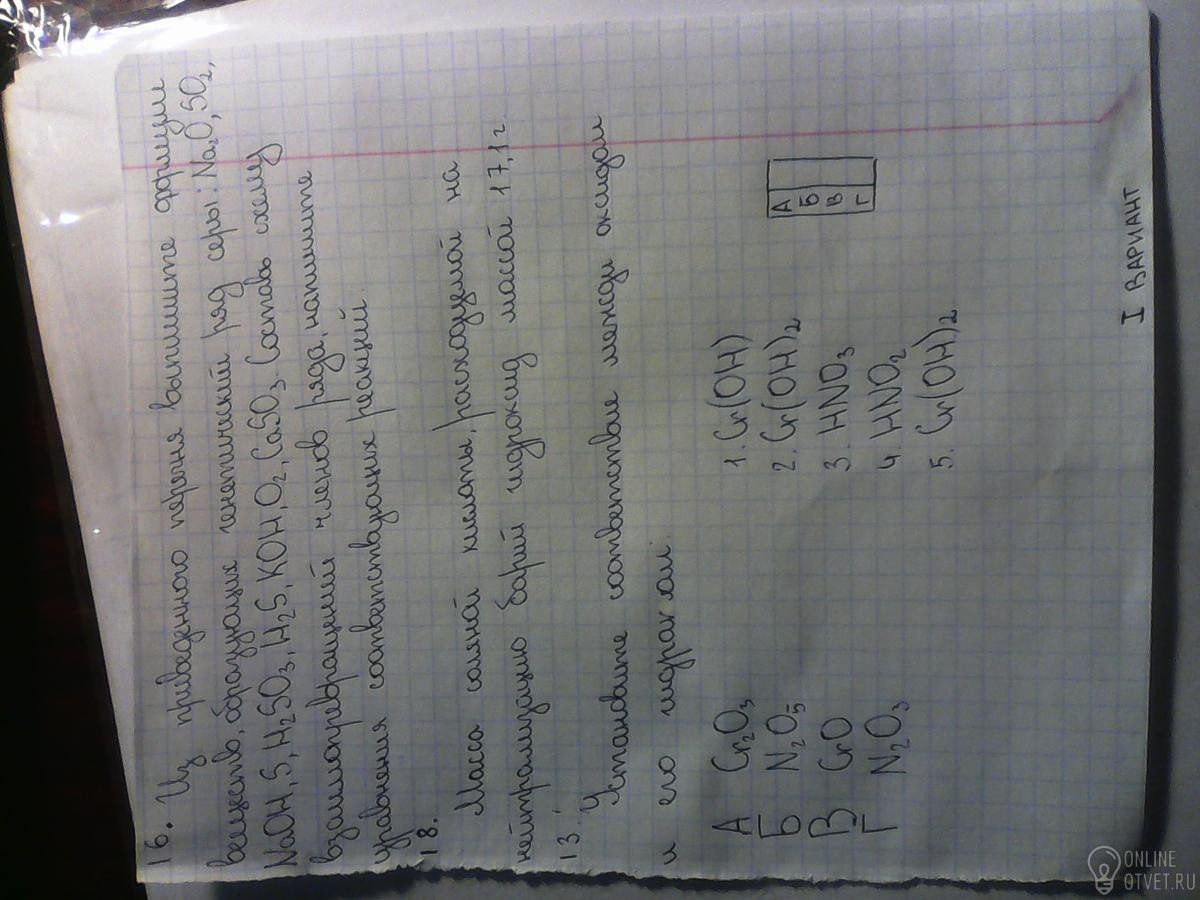 16. Из приведенного перечня выпишите формулы
веществ, образующих генетический ряд серы: Na₂O, SO₂,
NaOH, S, H₂SO₃, H₂S, KOH, O₂, CaSO₃. Составь схему
взаимопревращений членов ряда, напишите
уравнения соответствующих реакций.
18.
Масса соляной кислоты, расходуемой на
нейтрализацию барий гидроксид массой 17,1 г.
13.
Установите соответствие между оксидом
и его
А Cr₂O₃ 1. Cr(OH)
Б N₂O₅ 2. Cr(OH)₂
В CrO 3. HNO₃
Г N₂O₃ 4. HNO₂
5. Cr(OH)₂
А
Б
В
Г
I ВАРИАНТ
ONLINE
OTVET.RU